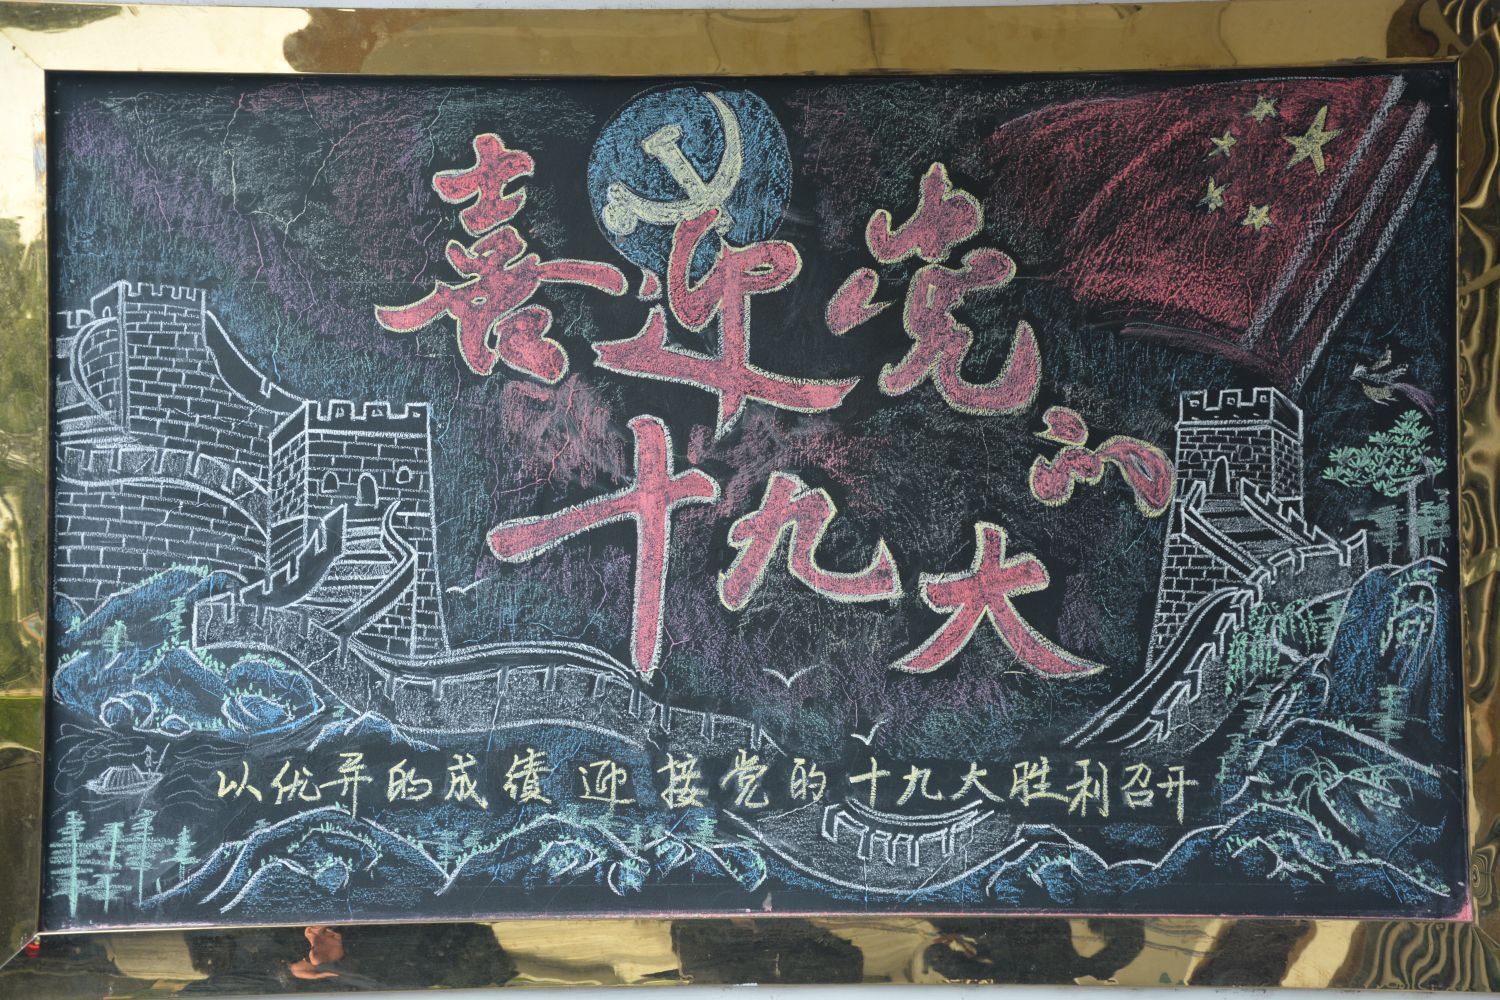 喜迎党的
十九大
以优异的成绩迎接党的十九大胜利召开